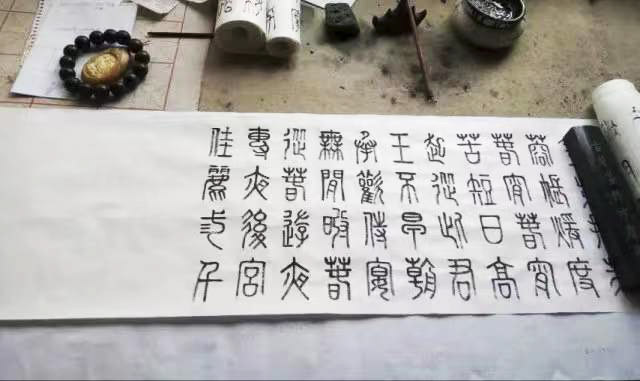 蓉帳暖度
春宵春宵
苦短日高
起從此君
王不早朝
承歡侍宴
無閒暇春
從春遊夜
專夜後宮
佳麗弎千